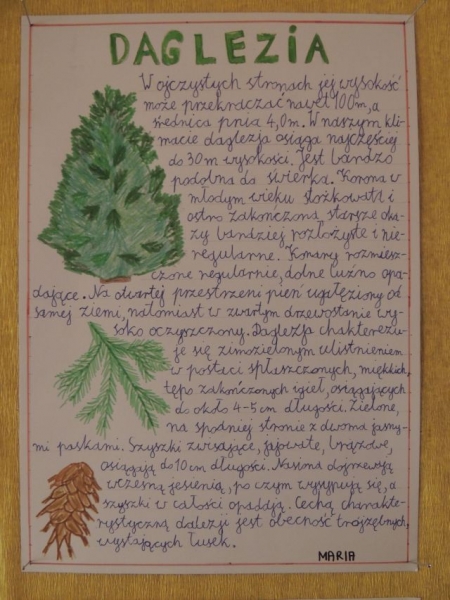 DAGLEZIA
W ojczystych stronach jej wysokość
może przekraczać nawet 100m, a
średnica pnia 4,0m. W naszym kli-
macie daglezja osiąga najczęściej
do 30m wysokości. Jest bardzo
podobna do świerka. Korona w
młodym wieku stożkowata i
ostro zakończona, starsze oka-
zy bardziej rozłożyste i nie-
regularne. Konary rozmiesz-
czone regularnie, dolne luźno opa-
dające. Na otwartej przestrzeni pień ugałęziony od
samej ziemi, natomiast w zwartym drzewostanie wy-
soko oczyszczony. Daglezja charakteryzu-
je się zimozielonym ulistnieniem
w postaci spłaszczonych, miękkich,
tępo zakończonych igieł, osiągających
do około 4-5cm długości. Zielone,
na spodniej stronie z dwoma jasny-
mi paskami. Szyszki zwisające, jajowate, brązowe,
osiągają do 10cm długości. Nasiona dojrzewają
wczesną jesienią, po czym wysypują się, a
szyszki w całości opadają. Cechą charakte-
rystyczną daglezji jest obecność trójzębnych,
wystających łusek.
MARIA